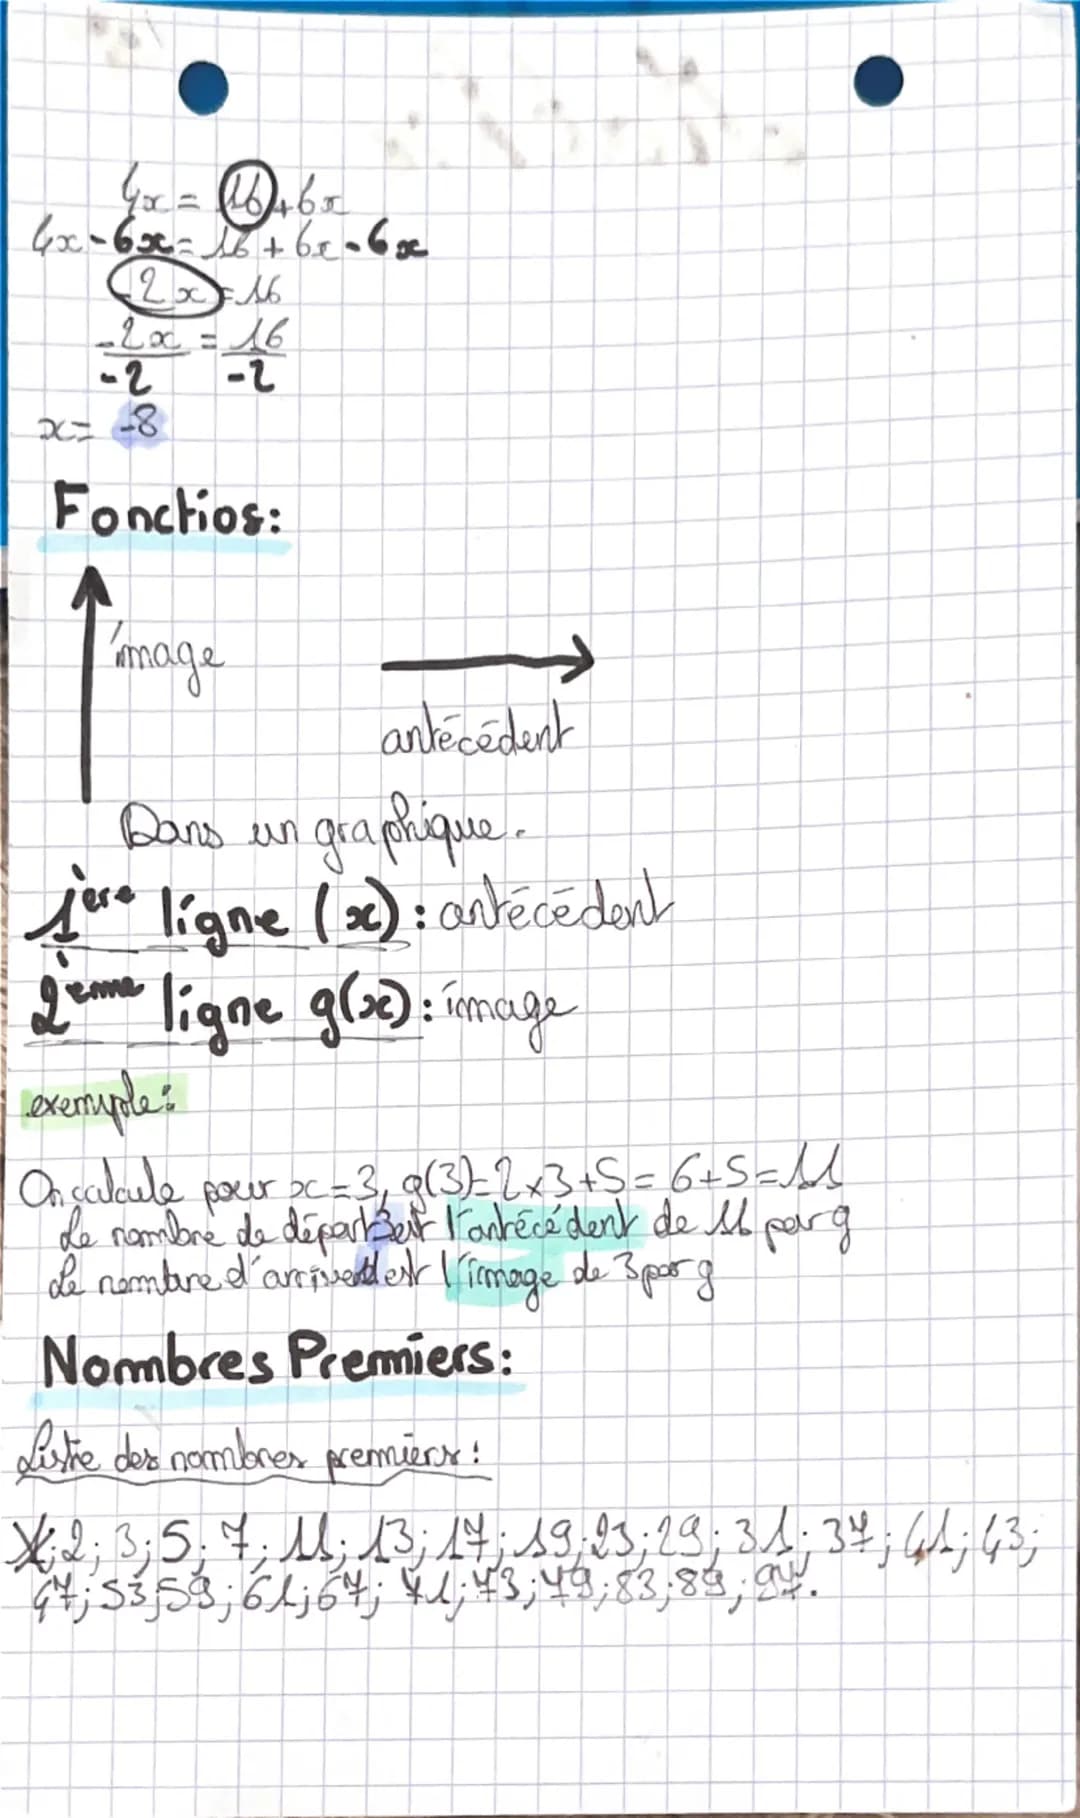 4x = 16 + 6x
4x - 6x = 16 + 6x - 6x
-2x = 16
-2x = 16
-2 -2
x = -8
Fonctios:
image
antécédent
Dans un graphique.
1ère ligne (x) : antécédent
2ème ligne g(x) : image
exemple :
On calcule pour x=3, g(3)=2x3+5=6+5=11
Le nombre de départ 3 est l'antécédent de 11 par g
Le nombre d'arrivé 11 est l'image de 3 par g
Nombres Premiers:
Liste des nombres premiers :
2; 3; 5; 7; 11; 13; 17; 19; 23; 29; 31; 37; 41; 43;
47; 53; 59; 61; 67; 71; 73; 79; 83; 89; 97.